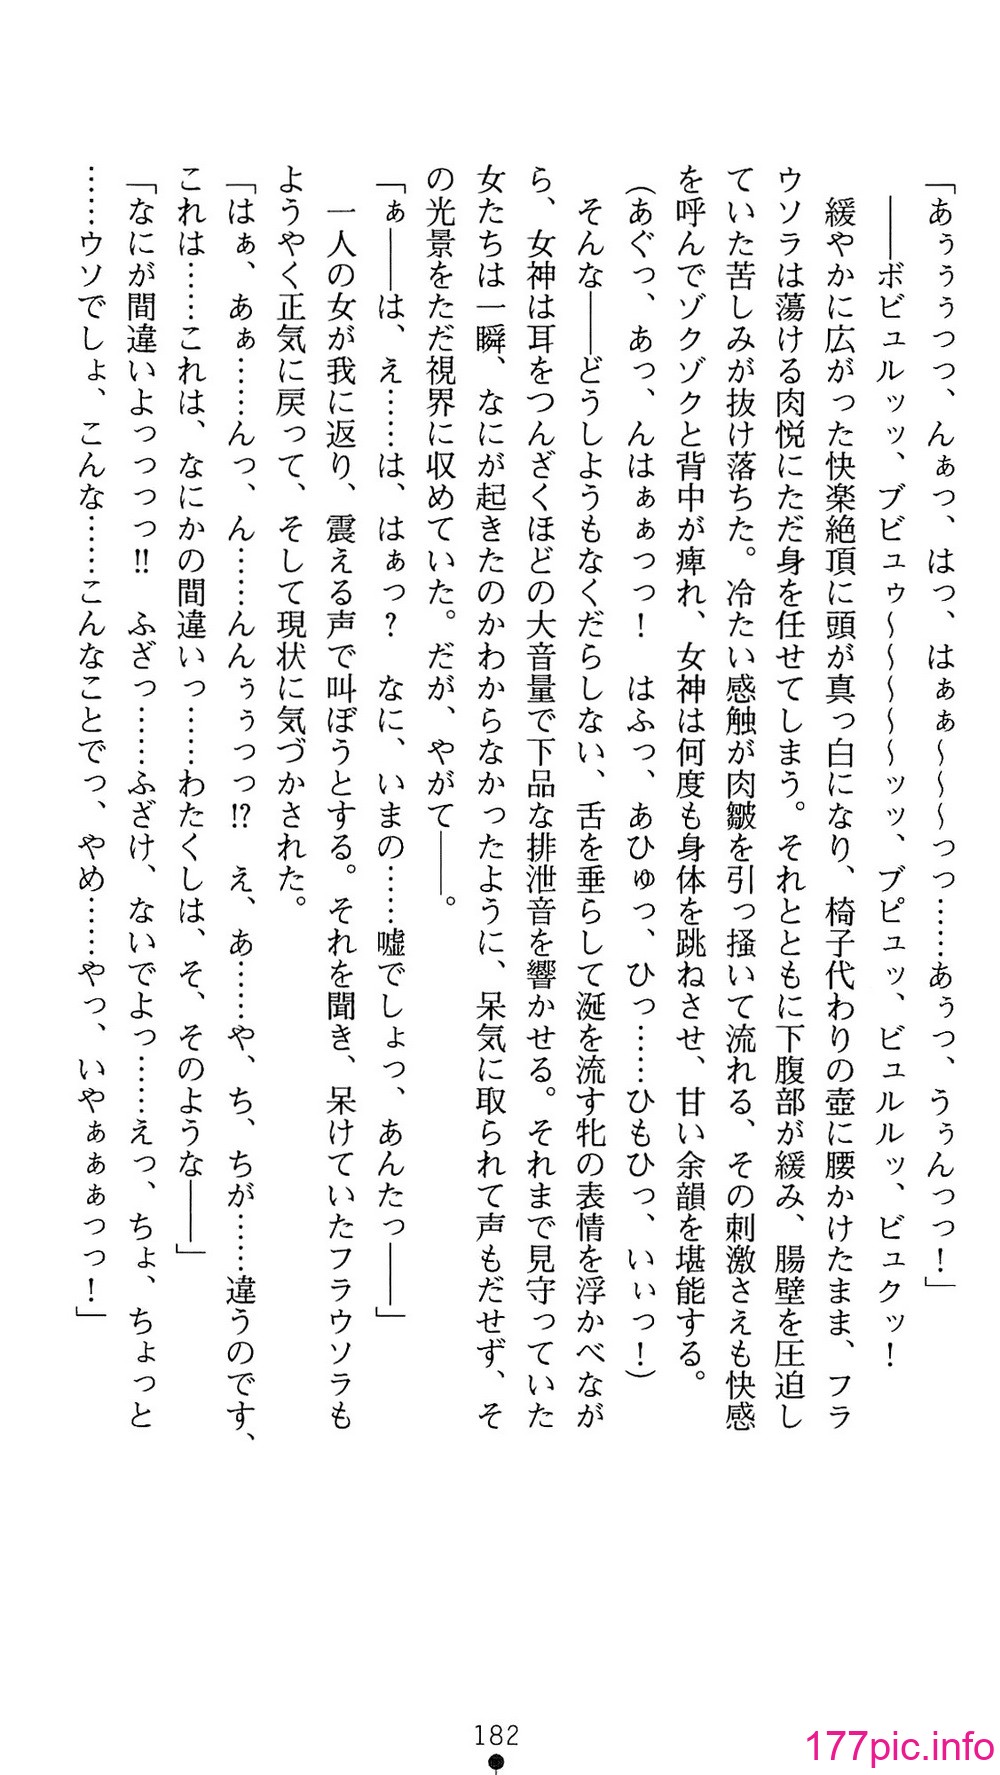 「あぅぅぅっっ、んぁっ、はっ、はぁぁ～～～っっ……あぅっ、うぅんっっ！」
――ボビュルッッ、ブビュゥ～～～～～ッッ、ブピュッ、ビュルルッ、ビュクッ！
緩やかに広がった快楽絶頂に頭が真っ白になり、椅子代わりの壺に腰かけたまま、フラ
ウソラは蕩ける肉悦にただ身を任せてしまう。それとともに下腹部が緩み、腸壁を圧迫し
ていた苦しみが抜け落ちた。冷たい感触が肉皺を引っ掻いて流れる、その刺激さえも快感
を呼んでゾクゾクと背中が痺れ、女神は何度も身体を跳ねさせ、甘い余韻を堪能する。
（あぐっ、あっ、んはぁぁっっ！　はふっ、あひゅっ、ひっ……ひもひっ、いぃっ！）
そんな――どうしようもなくだらしない、舌を垂らして涎を流す牝の表情を浮かべなが
ら、女神は耳をつんざくほどの大音量で下品な排泄音を響かせる。それまで見守っていた
女たちは一瞬、なにが起きたのかわからなかったように、呆気に取られて声もだせず、そ
の光景をただ視界に収めていた。だが、やがて――。
「ぁ――は、え……は、はぁっ？　なに、いまの……嘘でしょっ、あんたっ――」
一人の女が我に返り、震える声で叫ぼうとする。それを聞き、呆けていたフラウソラも
ようやく正気に戻って、そして現状に気づかされた。
「はぁ、あぁ……んっ、ん……んんぅぅっっ!?　え、あ……や、ち、ちが……違うのです、
これは……これは、なにかの間違いっ……わたくしは、そ、そのような――」
「なにが間違いよっっっっ!!　ふざっ……ふざけ、ないでよっ……えっ、ちょ、ちょっと
……ウソでしょ、こんな……こんなことでっ、やめ……やっ、いやぁぁぁっっ！」
182
177pic.info